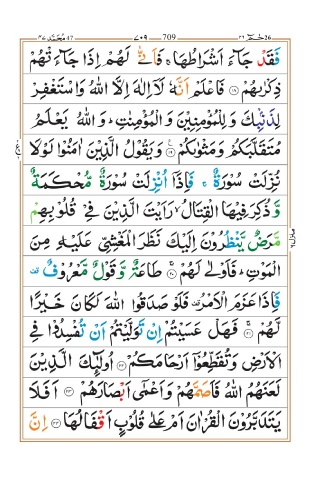 محمد ٤٧ ٧٠٩ 709 حٰم ٢٦
فَقَدْ جَآءَ اَشْرَاطُهَا ۚ فَاَنّٰى لَهُمْ اِذَا جَآءَتْهُمْ
ذِكْرٰىهُمْ ﴿١٨﴾ فَاعْلَمْ اَنَّهٗ لَاۤ اِلٰهَ اِلَّا اللّٰهُ وَاسْتَغْفِرْ
لِذَنْۢبِكَ وَلِلْمُؤْمِنِيْنَ وَالْمُؤْمِنٰتِ ؕ وَاللّٰهُ يَعْلَمُ
مُتَقَلَّبَكُمْ وَمَثْوٰىكُمْ ﴿١٩﴾ وَيَقُوْلُ الَّذِيْنَ اٰمَنُوْا لَوْلَا
نُزِّلَتْ سُوْرَةٌ ۚ فَاِذَاۤ اُنْزِلَتْ سُوْرَةٌ مُّحْكَمَةٌ
وَّذُكِرَ فِيْهَا الْقِتَالُ ۙ رَاَيْتَ الَّذِيْنَ فِيْ قُلُوْبِهِمْ
مَّرَضٌ يَّنْظُرُوْنَ اِلَيْكَ نَظَرَ الْمَغْشِيِّ عَلَيْهِ مِنَ
الْمَوْتِ ؕ فَاَوْلٰى لَهُمْ ﴿٢٠﴾ طَاعَةٌ وَّقَوْلٌ مَّعْرُوْفٌ ۟
فَاِذَا عَزَمَ الْاَمْرُ ۟ فَلَوْ صَدَقُوا اللّٰهَ لَكَانَ خَيْرًا
لَّهُمْ ﴿٢١﴾ فَهَلْ عَسَيْتُمْ اِنْ تَوَلَّيْتُمْ اَنْ تُفْسِدُوْا فِي
الْاَرْضِ وَتُقَطِّعُوْۤا اَرْحَامَكُمْ ﴿٢٢﴾ اُولٰٓئِكَ الَّذِيْنَ
لَعَنَهُمُ اللّٰهُ فَاَصَمَّهُمْ وَاَعْمٰۤى اَبْصَارَهُمْ ﴿٢٣﴾ اَفَلَا
يَتَدَبَّرُوْنَ الْقُرْاٰنَ اَمْ عَلٰى قُلُوْبٍ اَقْفَالُهَا ﴿٢٤﴾ اِنَّ